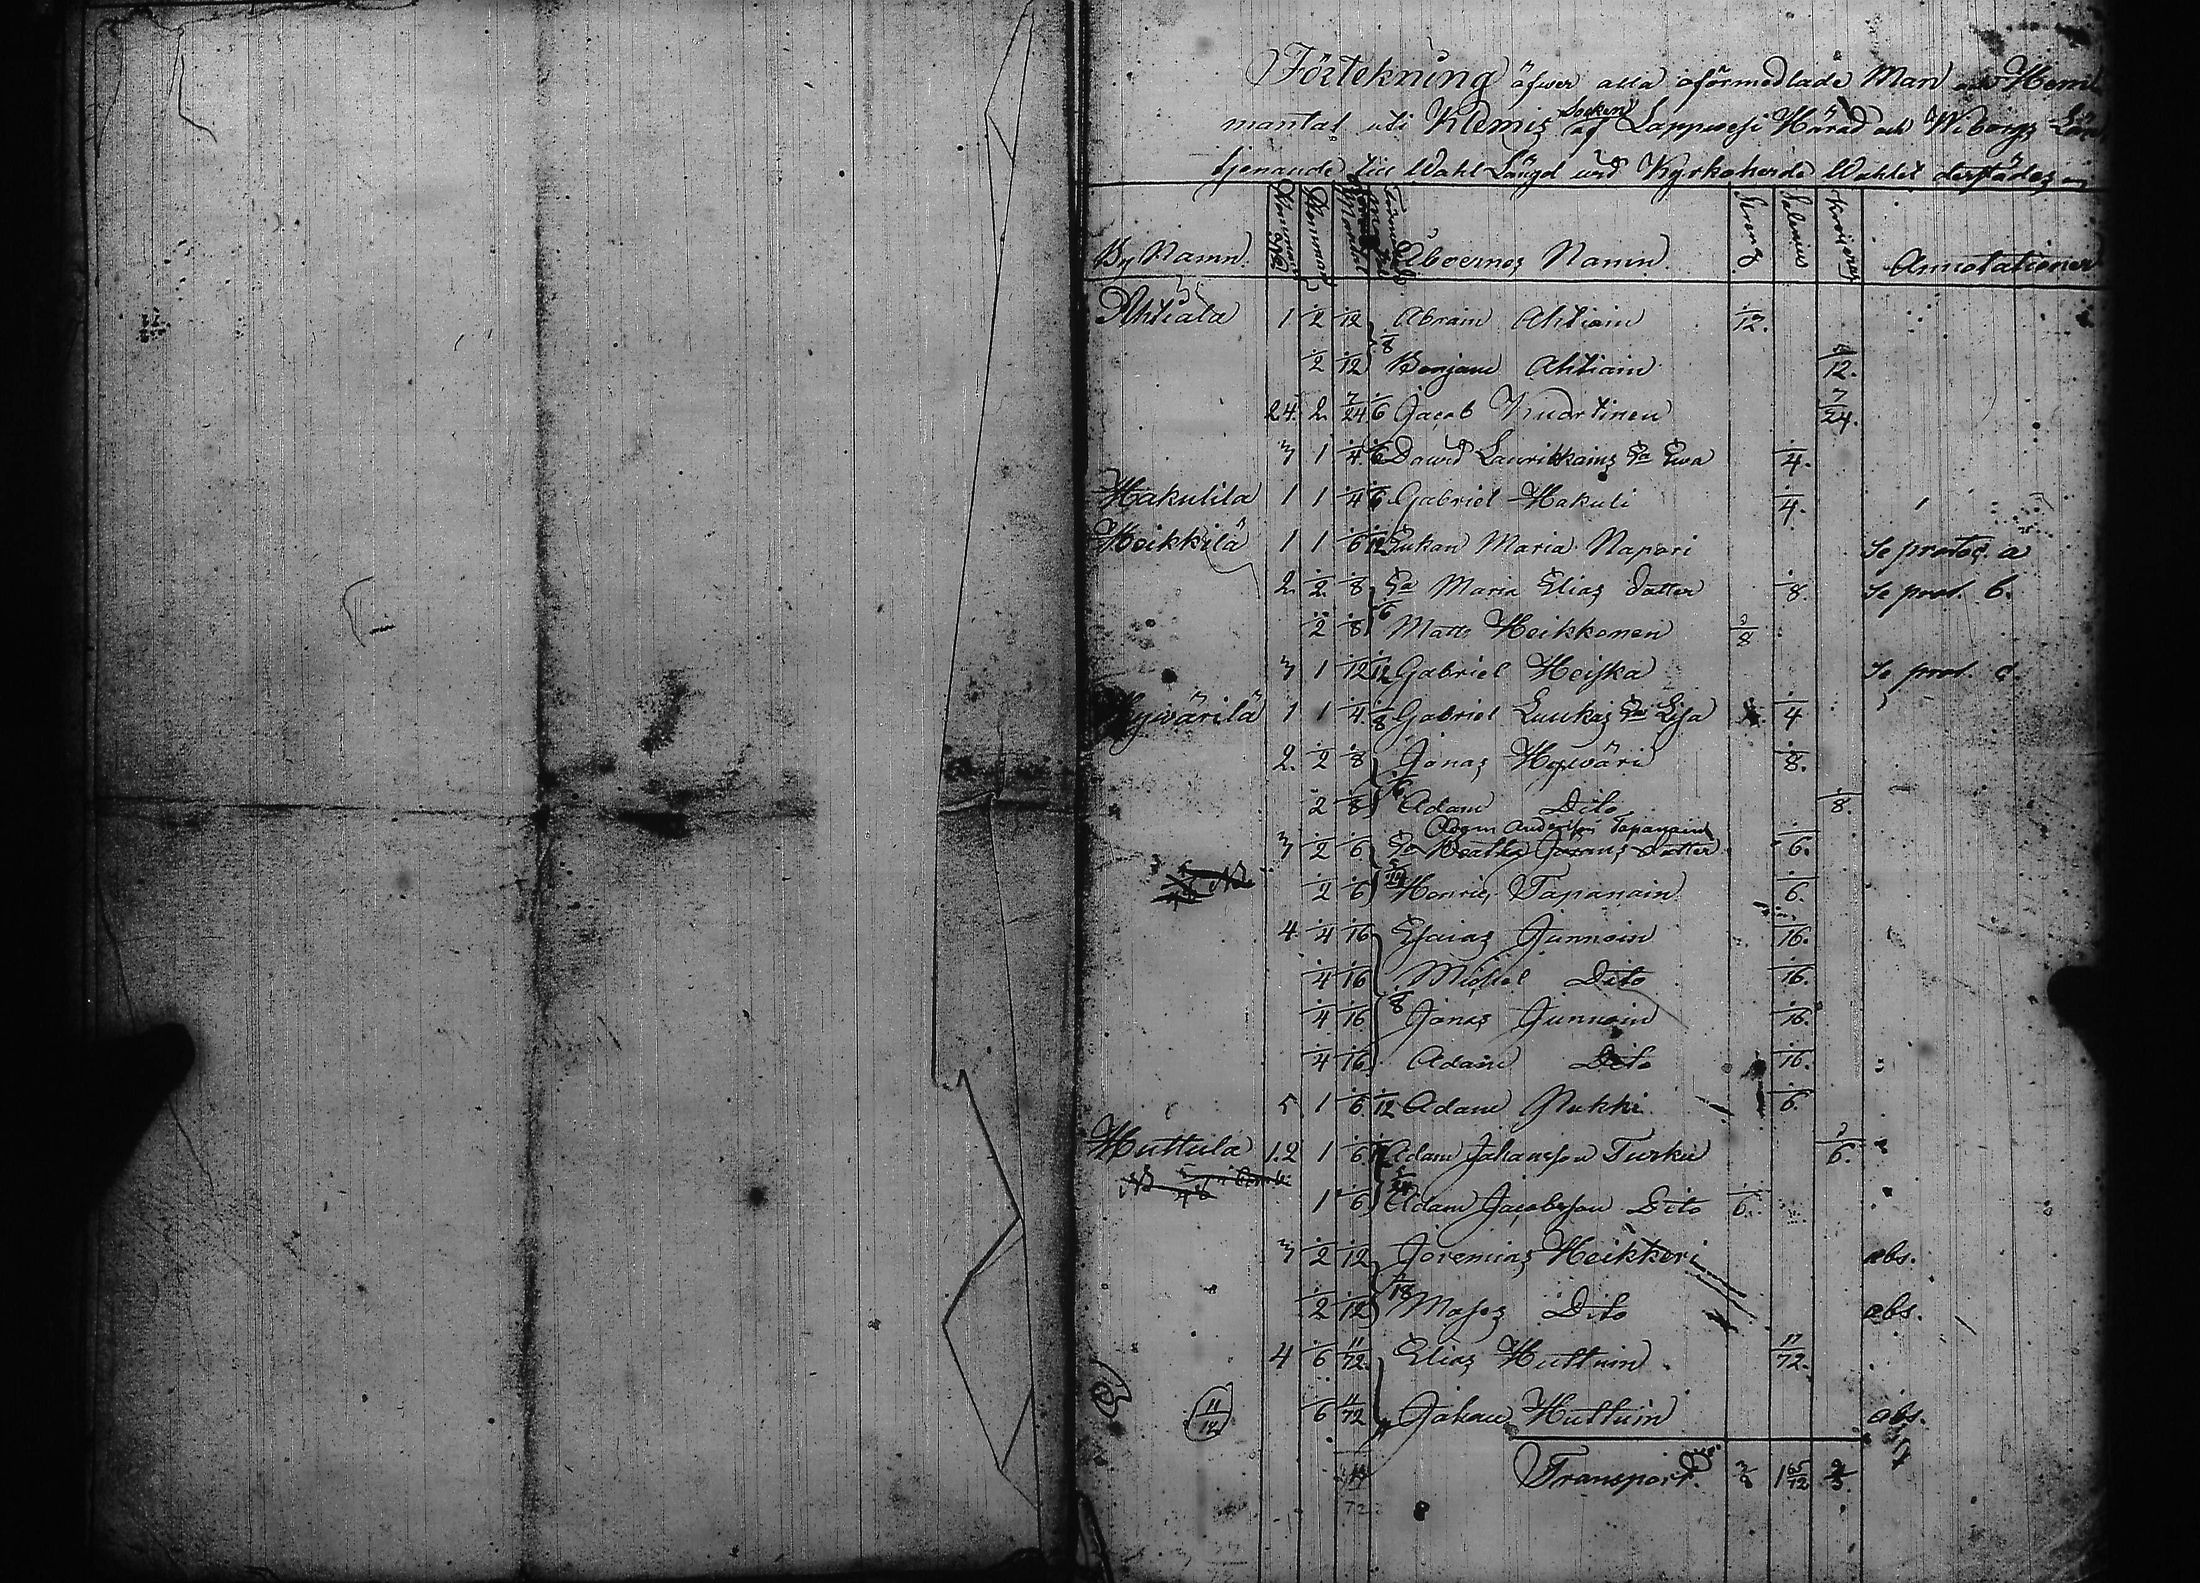 Förtekning öfwer alla oförmedlade Man och Hem
mantal uti Klemis Socken af Lappwesi Härad och Wiborgs Län
tjenande till Wahl Längd wid Kyrkoherde Wahlet derstädes
By Namn. Åboernes Namn Annotationer
Ahtiala 1 1/2 1/12 1/8 Abram Ahtiain 1/12.
1/2 1/12 Benjam Ahtiain 1/12.
24. 2. 7/24 1/6 Jacob Kuortinen 7/24.
3 1 1/4 1/6 David Laurikkains Ea Ewa 1/4.
Hakulila 1 1 1/4 1/6 Gabriel Hakuli 1/4.
Heikkilä 1 1 1/6 1/12 Enkan Maria Napari Se protoc. a
2. 1/2 1/8 Ea Maria Elias Datter 1/8. Se prot. b.
1/2 1/8 1/6 Matts Heikkonen 1/8
3 1 1/12 1/12 Gabriel Heiska Se prot. c.
Hywärilä 1 1 1/4 1/8 Gabriel Luukas Ea Lisa 1/4
2. 1/2 1/8 Jonas Hywäri 1/8.
1/2 1/8 1/6 Adam Dito 1/8.
Adam Anderss: Tapanain
3 1/2 1/6 Ea Beatha Jörans Datter 1/6.
1/2 1/6 Henric Tapanain 1/6.
4 1/4 1/16 Esaias Junnoin 1/16.
1/4 1/16 Michel Dito 1/16.
1/4 1/16 1/8 Jonas Junnoin 1/16.
1/4 1/16 Adam Dito 1/16.
5 1 1/6 1/12 Adam Nukki 1/6.
Huttula 1.2 1 1/6 Adam Johansson Turku 1/6.
1 1/6 Adam Jacobsson Dito 1/6.
3 1/2 1/12 Jeremias Heikkeri abs.
1/2 1/12 1/18 Moses Dito abs.
4 1/6 11/72 Elias Huttuin 11/72.
11/12 1/6 11/72 Johan Huttuin abs.
Transport.